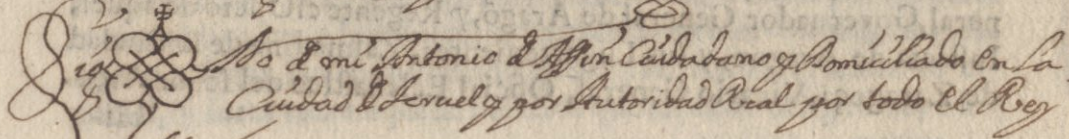 Sig No de mi Antonio de Assin Ciudadano y Domiciliado en La
Ciudad de Teruel y por Autoridad Real por todo el Rey